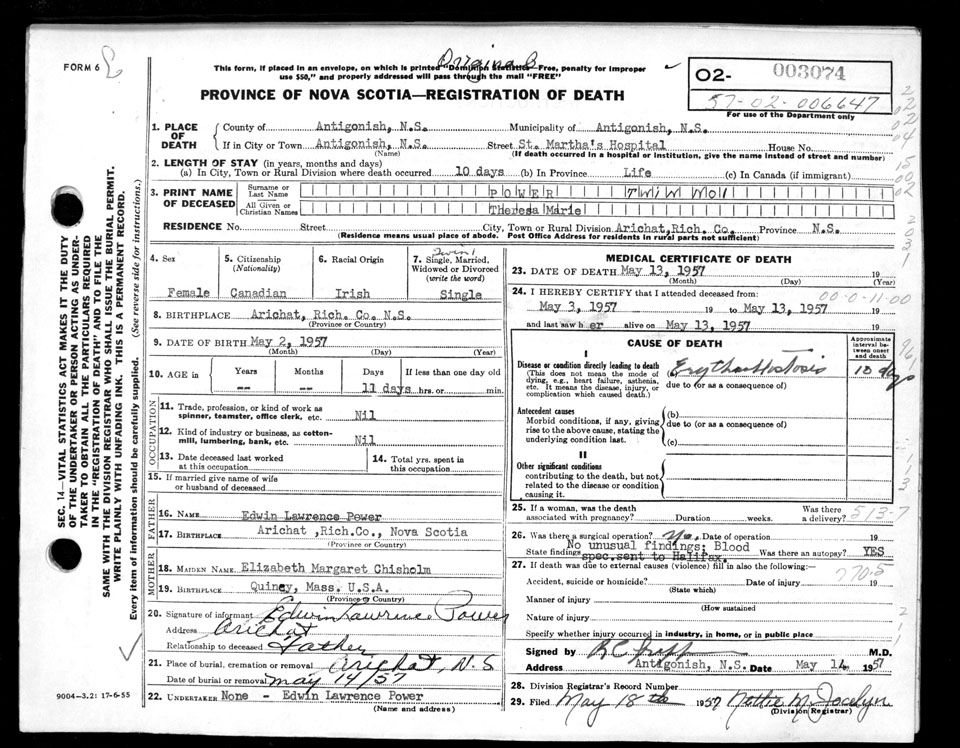 FORM 6
Original
This form, if placed in an envelope, on which is printed "Dominion Statistics—Free, penalty for improper
use $50," and properly addressed will pass through the mail "FREE"
O2- 003074
57-02-006647
For use of the Department only
PROVINCE OF NOVA SCOTIA—REGISTRATION OF DEATH
1. PLACE OF DEATH
County of Antigonish, N.S. Municipality of Antigonish, N.S.
If in City or Town Antigonish, N.S. Street St. Martha's Hospital House No.
(Name) (If death occurred in a hospital or institution, give the name instead of street and number)
2. LENGTH OF STAY (in years, months and days)
(a) In City, Town or Rural Division where death occurred 10 days (b) In Province Life (c) In Canada (if immigrant)
3. PRINT NAME OF DECEASED
Surname or Last Name POWER TWIN NO 1
All Given or Christian Names Theresa Marie
RESIDENCE No. Street City, Town or Rural Division Arichat, Rich. Co. Province N.S.
(Residence means usual place of abode. Post Office Address for residents in rural parts not sufficient)
4. Sex
Female
5. Citizenship
(Nationality)
Canadian
6. Racial Origin
Irish
Twin 1
7. Single, Married,
Widowed or Divorced
(write the word)
Single
8. BIRTHPLACE Arichat, Rich. Co. N.S.
(Province or Country)
9. DATE OF BIRTH May 2, 1957
(Month) (Day) (Year)
10. AGE in Years Months Days If less than one day old
-- -- 11 days hrs. or min.
OCCUPATION
11. Trade, profession, or kind of work as
spinner, teamster, office clerk, etc. Nil
12. Kind of industry or business, as cotton-
mill, lumbering, bank, etc. Nil
13. Date deceased last worked
at this occupation
14. Total yrs. spent in
this occupation
15. If married give name of wife
or husband of deceased
FATHER
16. NAME Edwin Lawrence Power
17. BIRTHPLACE Arichat ,Rich.Co., Nova Scotia
(Province or Country)
MOTHER
18. MAIDEN NAME Elizabeth Margaret Chisholm
19. BIRTHPLACE Quincy, Mass. U.S.A.
(Province or Country)
20. Signature of informant Edwin Lawrence Power
Address Arichat
Relationship to deceased Father
21. Place of burial, cremation or removal Arichat, N.S
Date of burial or removal May 14/57
22. UNDERTAKER None - Edwin Lawrence Power
(Name and address)
MEDICAL CERTIFICATE OF DEATH
23. DATE OF DEATH May 13, 1957 19
(Month) (Day) (Year)
24. I HEREBY CERTIFY that I attended deceased from:
00-0-11-00
May 3, 1957 19 to May 13, 1957 19
and last saw her alive on May 13, 1957 19
CAUSE OF DEATH
Approximate
interval be-
tween onset
and death
I
Disease or condition directly leading to death
(This does not mean the mode of
dying, e.g., heart failure, asthenia,
etc. It means the disease, injury, or
complication which caused death.)
(a) 10 days
due to (or as a consequence of)
Antecedent causes
Morbid conditions, if any, giving
rise to the above cause, stating the
underlying condition last.
(b)
due to (or as a consequence of)
(c)
II
Other significant conditions
contributing to the death, but not
related to the disease or condition
causing it.
25. If a woman, was the death
associated with pregnancy? Duration weeks. Was there
a delivery?
513-7
26. Was there a surgical operation? No. Date of operation 19
State findings No unusual findings; Blood
spec.sent to Halifax. Was there an autopsy? YES
27. If death was due to external causes (violence) fill in also the following:—
770.5
Accident, suicide or homicide? Date of injury 19
(State which)
Manner of injury
(How sustained
Nature of injury
Specify whether injury occurred in industry, in home, or in public place
Signed by M.D.
Address Antigonish, N.S. Date May 14 1957
28. Division Registrar's Record Number
29. Filed May 18th 1957 Nettie M. Jocelyn
(Division Registrar)
SEC. 14—VITAL STATISTICS ACT MAKES IT THE DUTY
OF THE UNDERTAKER OR PERSON ACTING AS UNDER-
TAKER TO OBTAIN ALL THE PARTICULARS REQUIRED
IN THE "REGISTRATION OF DEATH" AND TO FILE THE
SAME WITH THE DIVISION REGISTRAR WHO SHALL ISSUE THE BURIAL PERMIT.
WRITE PLAINLY WITH UNFADING INK. THIS IS A PERMANENT RECORD.
Every item of information should be carefully supplied. (See reverse side for instructions.)
9004—3.2: 17-6-55